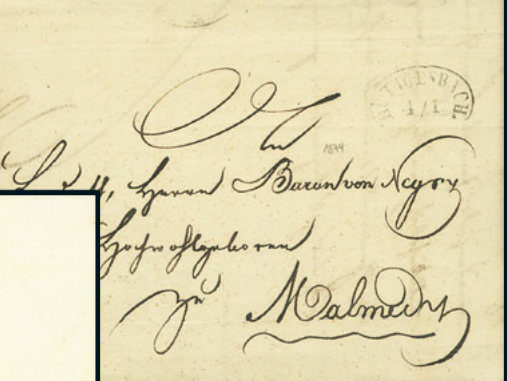 BÜTGENBACH.
4/1
An
1844
Herrn Baron von Negry
Hochwohlgeboren
zu
Malmedy